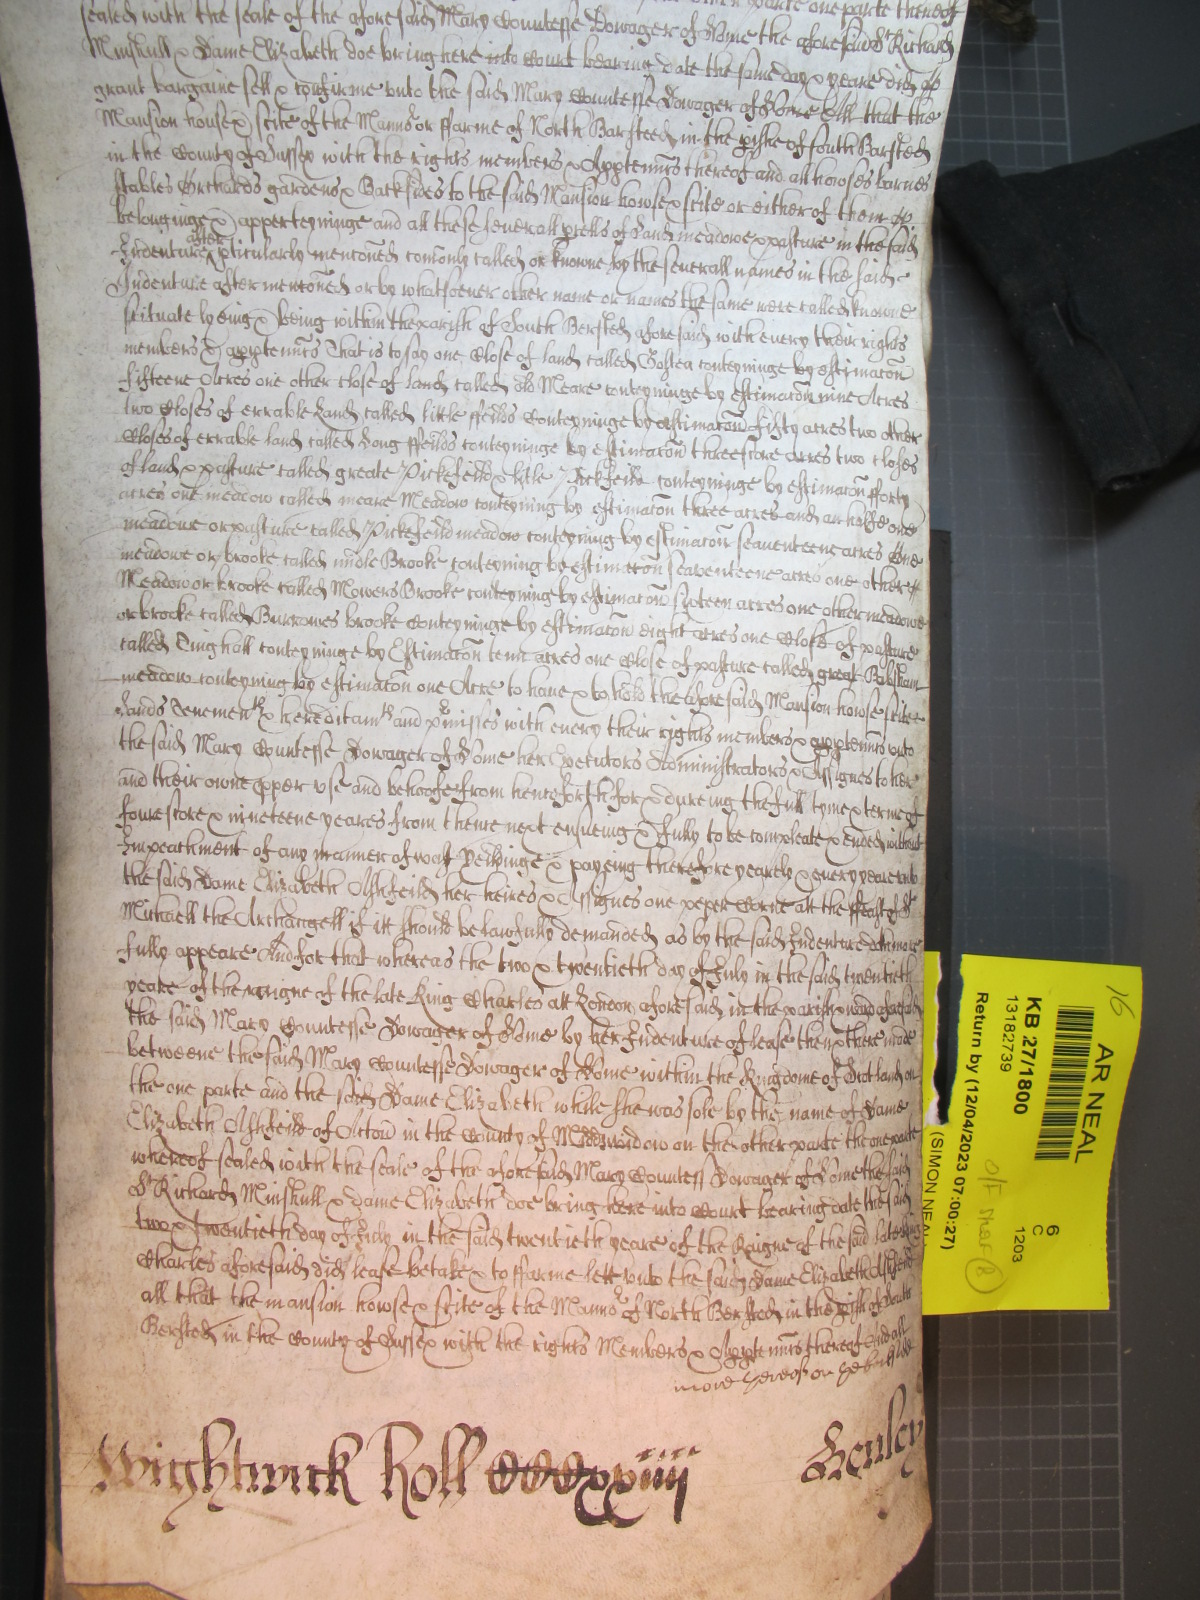 sealed with the seale of the aforesaid Mary Countesse Dowager of Home the aforesaid Sr Richard
Minshull & Dame Elizabeth doe bring here into Court bearing date the same day & yeare did
grant bargaine sell & confirme unto the said Mary Countesse Dowager of Home All that the
Mansion house & scite of the Mannor or ffarme of North Barsteed in the pishe of South Barsted
in the County of Sussex with the rights members & Apptennts thereof and all howses barnes
stables Orchards gardens & Backsides to the said Mansion howse & scite or either of them
belonginge & apperteyninge and all these severall pcells of Land meadowe & pasture in the said
Indenture after pticularly mentoned comonly called or knowne by the severall names in the said
Indenture after mentoned or by whatsoever other name or names the same were called knowne
scituate lyeing & being within the parish of South Bersted aforesaid with every their rights
members & apptennts That is to say one Close of land called conteyninge by estimacon
fifteene Acres one other close of land called old Meare conteyninge by estimacon nine Acres
two Closes of errable Land called little ffeilds Conteyninge by estimacon fifty acres two other
Closes of errable land called Long ffeilds conteyninge by estimacon threescore acres two closes
of land & pasture called greate Pickefeild & litle Pickfeild conteyninge by estimacon fforty
acres one meadow called meare Meadow conteyning by estimacon three acres and an halfe one
meadowe or pasture called Pickefeild meadow conteyning by estimacon seaventeene acres One
meadowe or brooke called midle Brooke conteyning by estimacon seaventeene acres one other
Meadow or brooke called Mowers Brooke conteyning by estimacon sixteen acres one other meadowe
or brooke called Burrowes brooke Conteyninge by estimacon eight acres one Close of pasture
called Tinghall conteyninge by Estimacon tenn acres one Close of pasture called great
meadow conteyning by estimacon one Acre to have & to hold the aforesaid Mansion howse scite
Lands Tenements & hereditamts and pmisses with every their rights members & apptennts unto
the said Mary Countesse Dowager of Home her Executors Administrators & Assignes to her
and their owne pper use and behoofe from henceforth for & dureing the full tyme & terme of
fourescore & nineteene yeares from thence next ensueing & fully to be compleate & ended without
Impeachment of any manner of wast Yeildinge & payeing therefore yearely & every yeare unto
the said Dame Elizabeth Ashfeild her heires & Assignes one peper Corne att the ffeast of St
Michaell the Archangell if itt should be lawfully demanded as by the said Indenture doth more
fully appeare And for that whereas the two & twentieth day of July in the said twentieth
yeare of the raigne of the late King Charles att London aforesaid in the parish & ward aforesaid
the said Mary Countesse Dowager of Home by her Indenture of lease then & there made
betweene the said Mary Countesse Dowager of Home within the Kingdome of Scotland on
the one parte and the said Dame Elizabeth while she was sole by the name of Dame
Elizabeth Ashfeild of Acton in the County of Midds widow on the other parte the one parte
whereof sealed with the seale of the aforesaid Mary Countess Dowager of Home the said
Sr Richard Minshull & dame Elizabeth doe bring here into Court bearing date the said
two & twentieth day of July in the said twentieth yeare of the Raigne of the said late King
Charles aforesaid did lease betake & to ffarme lett unto the said Dame Elizabeth Ashfeild
all that the mansion howse & scite of the Mannor of North Bersted in the pish of South
Bersted in the County of Sussex with the rights Members & Apptennts thereof And all
more hereof on ye backside
Wightwick Roll CCCCxxiiij
Henley
16
AR NEAL
KB 27/1800
13182739
Return by (12/04/2023 07:00:27)
(SIMON NEAL)
6
C
1203